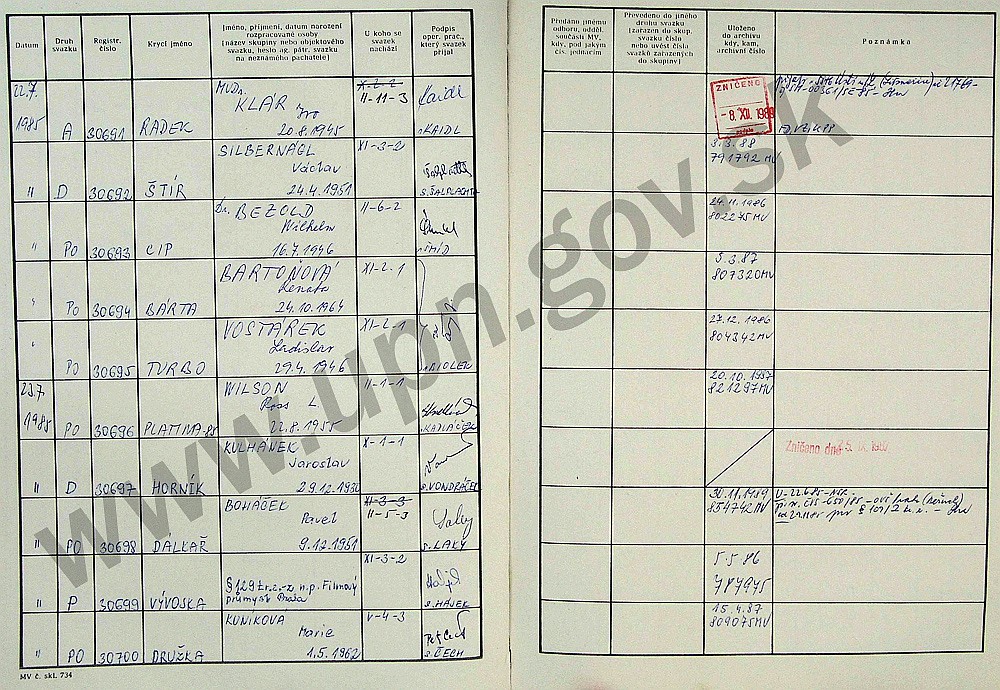 Datum
Druh svazku
Registr. číslo
Krycí jméno
Jméno, příjmení, datum narození
rozpracované osoby
(název skupiny nebo objektového
svazku, heslo ag. pátr. svazku
na neznámého pachatele)
U koho se
svazek
nachází
Podpis
oper. prac.,
který svazek
přijal
Předáno jinému
odboru, odděl.
součásti MV,
kdy, pod jakým
čís. jednacím
Převedeno do jiného
druhu svazku
(zařazen do skup.
svazku číslo
nebo uvést čísla
svazků zařazených
do skupiny)
Uloženo
do archivu
kdy, kam,
archivní číslo
Poznámka
22.7. 1985 A 30691 RADEK
MVDr. KLÁR Ivo
20.8.1945
X-2-2
II-11-3
Kaidl
KAIDL
ZNIČENO
-8. XII. 1989
" D 30692 ŠTÍR
SILBERNÁGL
Václav
24.4.1951
XI-3-2
s.ŠALPLACHTA
3.3.88
791792 MV
" PO 30693 CIP
Dr. BEZOLD
Wilhelm
16.7.1946
II-6-2
ŠMÍD
24.11.1986
802275MV
" PO 30694 BÁRTA
BARTOŇOVÁ
Renata
24.10.1964
XI-2-1
3.3.87
807320MV
" PO 30695 TURBO
VOSTÁREK
Ladislav
29.4.1946
XI-2-1
27.12.1986
804342MV
23.7. 1985 PO 30696 PLATINA-85
WILSON
Ross L.
22.8.1955
II-1-1
20.10.1987
821297MV
" D 30697 HORNÍK
KULHÁNEK
Jaroslav
29.12.1930
X-1-1
s.VONDRÁČEK
Zničeno dne
" PO 30698 DÁLKAŘ
BOHÁČEK
Pavel
9.12.1951
XI-3-3
II-5-3
s.LAKY
30.11.1989
854742MV
" P 30699 VÝVOSKA
§ 129 tr.z.-z. n.p. Filmový
průmysl Praha
XI-3-2
s.HÁJEK
5.5.86
787945
" PO 30700 DRUŽKA
KUNÍKOVA
Marie
1.5.1962
V-4-3
s.ČECH
15.4.87
809075MV
MV č. skl. 734
www.upn.gov.sk